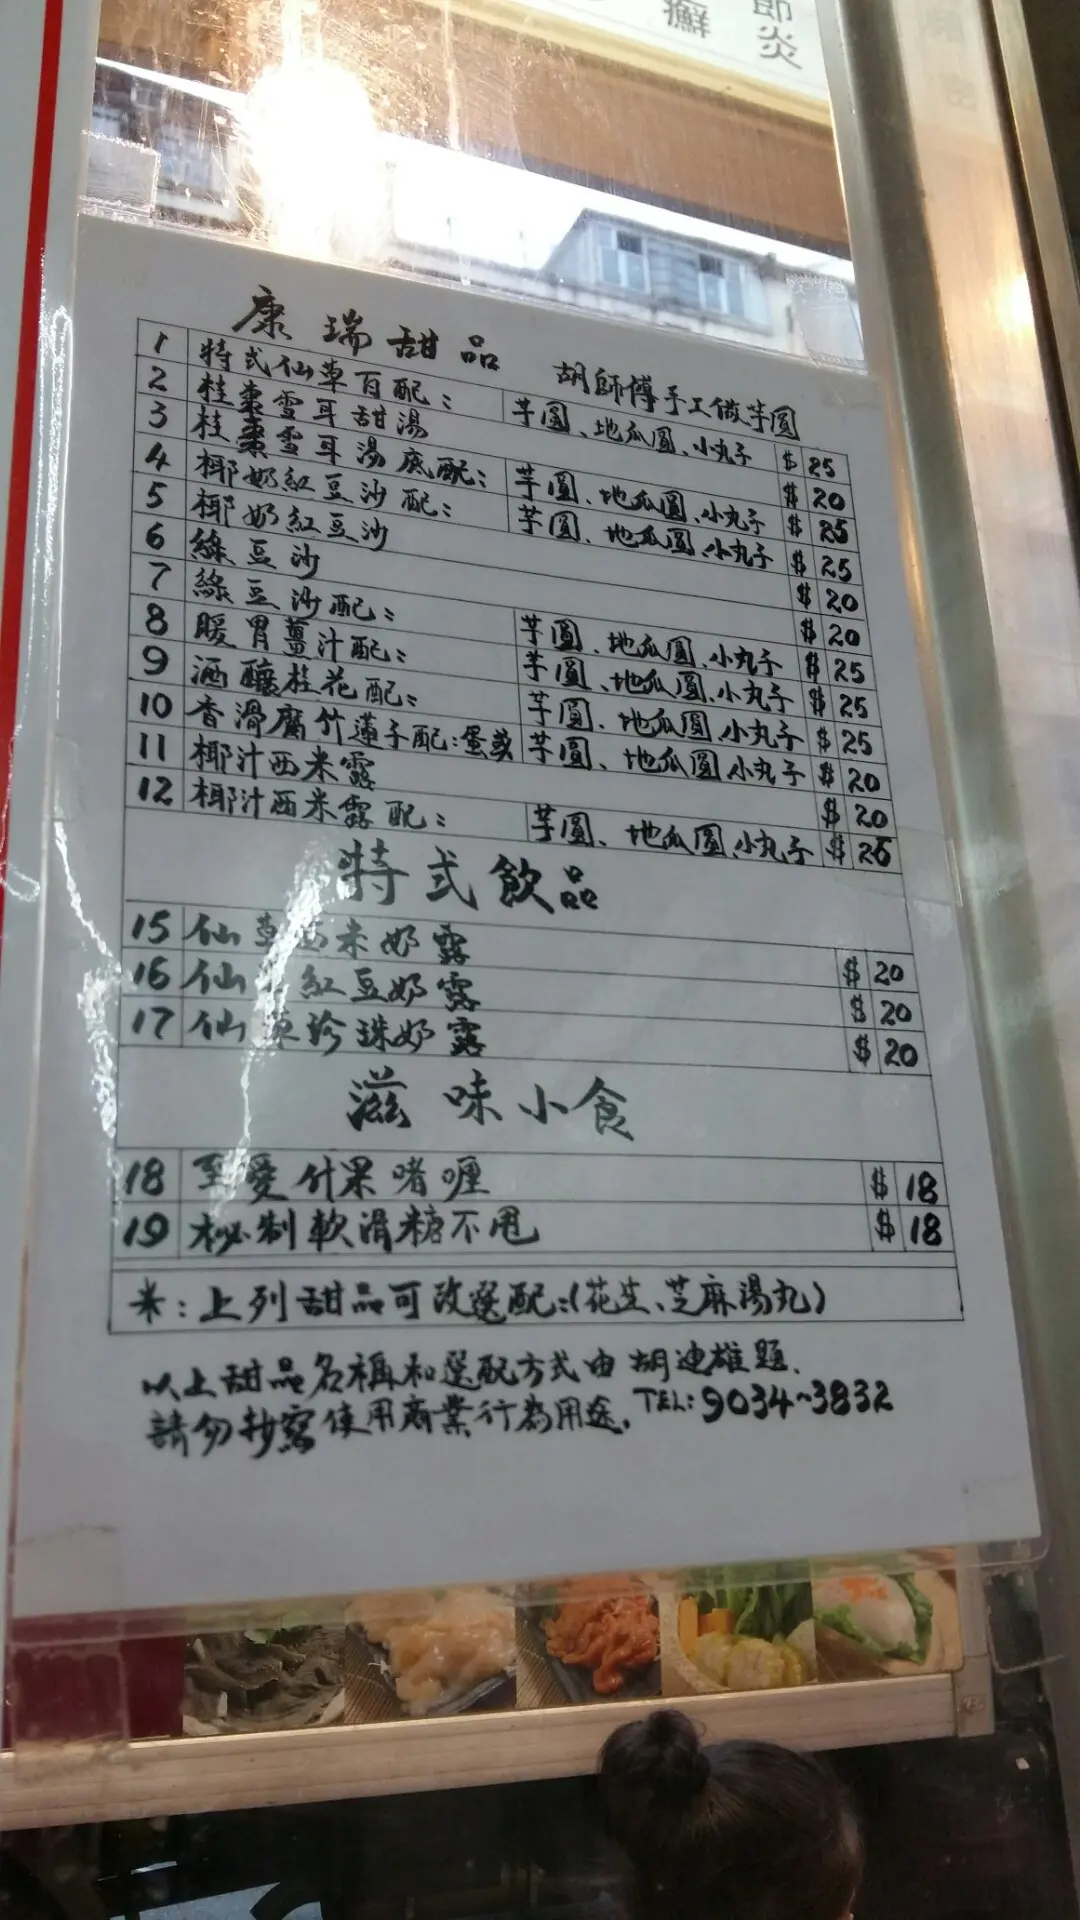 節炎
癬
康瑞甜品 胡師傅手工做芋圓
1 特式仙草百配： 芋圓、地瓜圓、小丸子 $ 25
2 桂棗雪耳甜湯 $ 20
3 桂棗雪耳湯底配： 芋圓、地瓜圓、小丸子 $ 25
4 椰奶紅豆沙配： 芋圓、地瓜圓、小丸子 $ 25
5 椰奶紅豆沙 $ 20
6 綠豆沙 $ 20
7 綠豆沙配： 芋圓、地瓜圓、小丸子 $ 25
8 暖胃薑汁配： 芋圓、地瓜圓、小丸子 $ 25
9 酒釀桂花配： 芋圓、地瓜圓、小丸子 $ 25
10 香滑腐竹蓮子配：蛋或 芋圓、地瓜圓、小丸子 $ 20
11 椰汁西米露 $ 20
12 椰汁西米露配： 芋圓、地瓜圓、小丸子 $ 25
特式飲品
15 仙草西米奶露 $ 20
16 仙草紅豆奶露 $ 20
17 仙草珍珠奶露 $ 20
滋味小食
18 至愛什果啫喱 $ 18
19 秘制軟滑糖不甩 $ 18
*：上列甜品可改選配：(花生、芝麻湯丸)
以上甜品名稱和選配方式由胡迪雄題.
請勿抄寫使用商業行為用途. TEL: 9034~3832